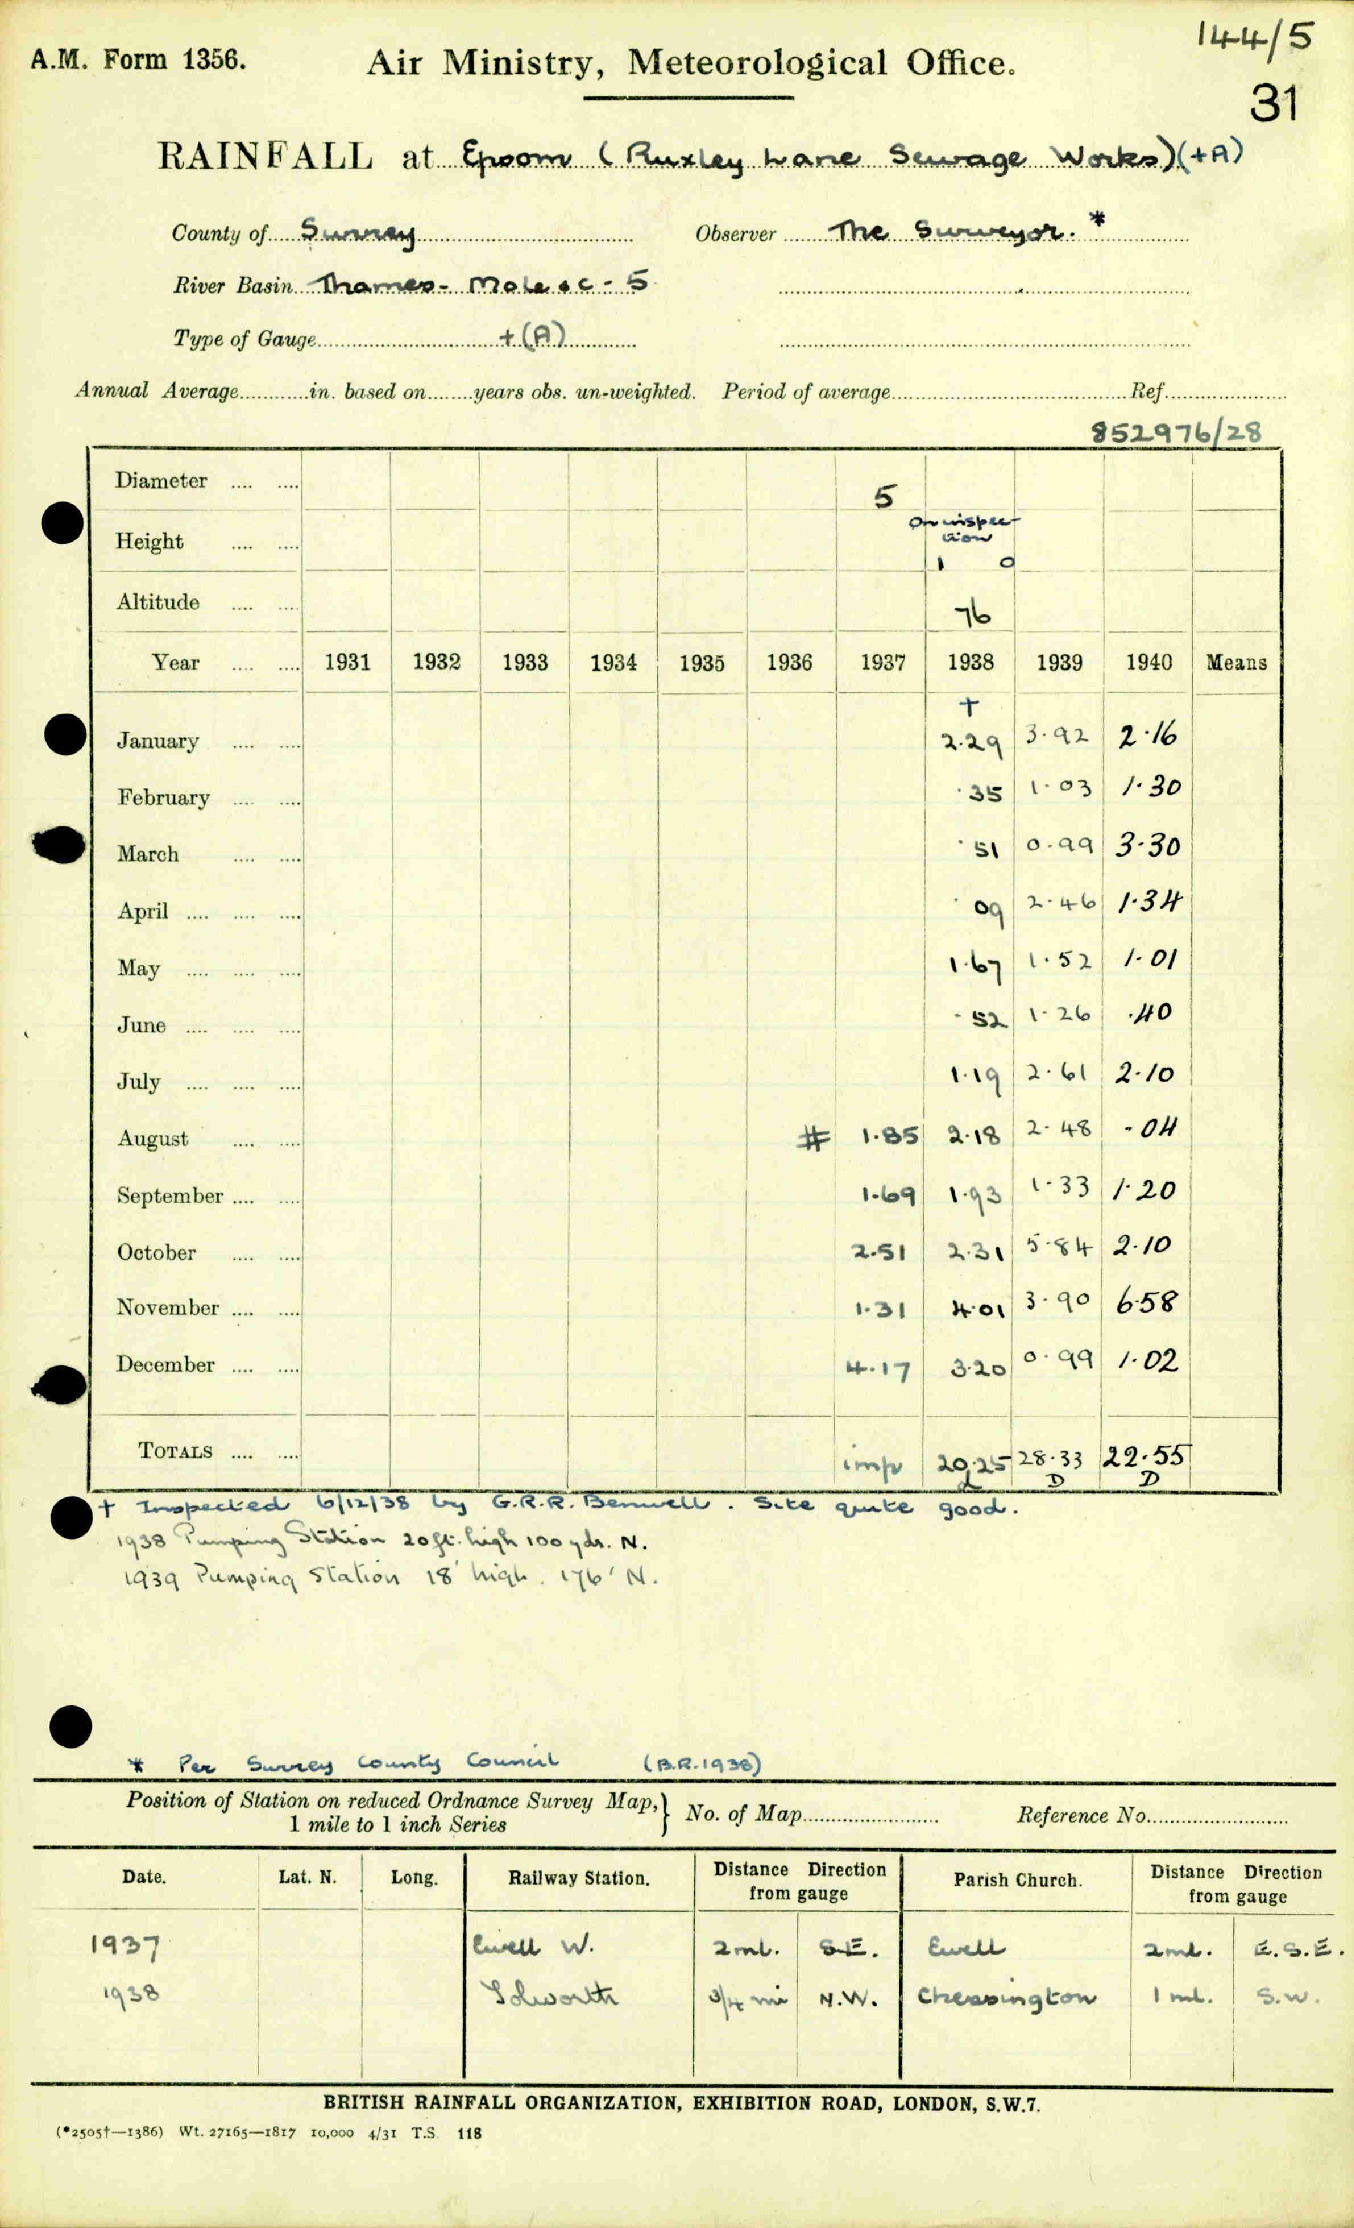 144/5
A.M. Form 1356. Air Ministry, Meteorological Office.
31
RAINFALL at Epsom (Ruxley Lane Sewage Works) (+A)
County of Surrey Observer The Surveyor. *
River Basin Thames - Mole &c - 5
Type of Gauge +(A)
Annual Average in. based on years obs. un-weighted. Period of average Ref.
852976/28
Diameter 5
Height On inspec-tion 1 0
Altitude 76
Year 1931 1932 1933 1934 1935 1936 1937 1938 1939 1940 Means
†
January 2.29 3.92 2.16
February .35 1.03 1.30
March .51 0.99 3.30
April .09 2.46 1.34
May 1.67 1.52 1.01
June .52 1.26 .40
July 1.19 2.61 2.10
August # 1.85 2.18 2.48 .04
September 1.69 1.93 1.33 1.20
October 2.51 2.31 5.84 2.10
November 1.31 4.01 3.90 6.58
December 4.17 3.20 0.99 1.02
TOTALS imp 20.25 28.33 22.55
D D
† Inspected 6/12/38 by G.R.R. Benwell. Site quite good.
1938 Pumping Station 20 ft. high 100 yds. N.
1939 Pumping Station 18' high. 176' N.
* Per Surrey County Council (B.R. 1938)
Position of Station on reduced Ordnance Survey Map, } No. of Map Reference No.
1 mile to 1 inch Series
Date. Lat. N. Long. Railway Station. Distance Direction from gauge Parish Church. Distance Direction from gauge
1937 Ewell W. 2 ml. S.E. Ewell 2 ml. E.S.E.
1938 Tolworth 3/4 mi N.W. Chessington 1 ml. S.W.
BRITISH RAINFALL ORGANIZATION, EXHIBITION ROAD, LONDON, S.W.7.
(*2505†—1386) Wt. 27165—1817 10,000 4/31 T.S. 118